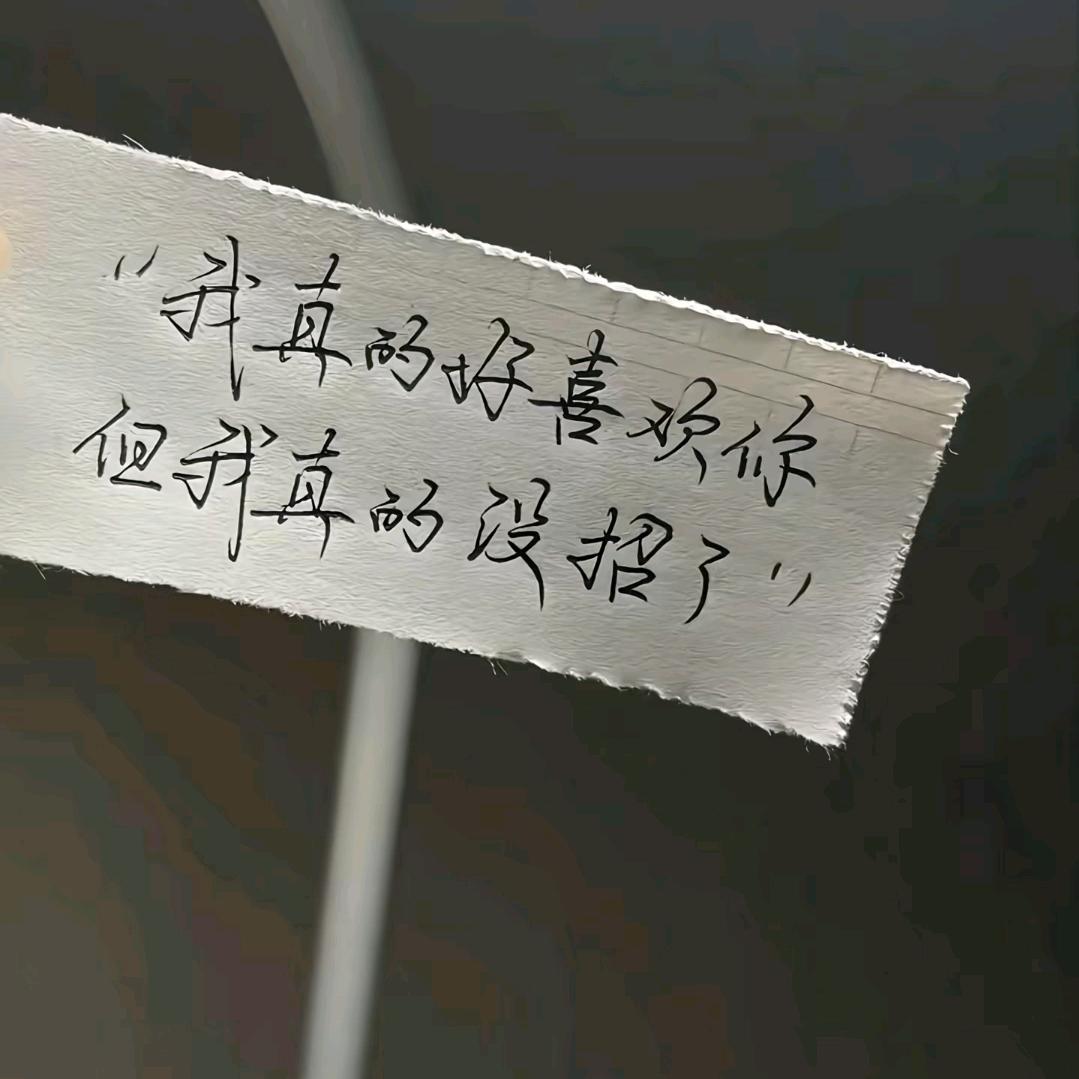 “我真的好喜欢你
但我真的没招了”